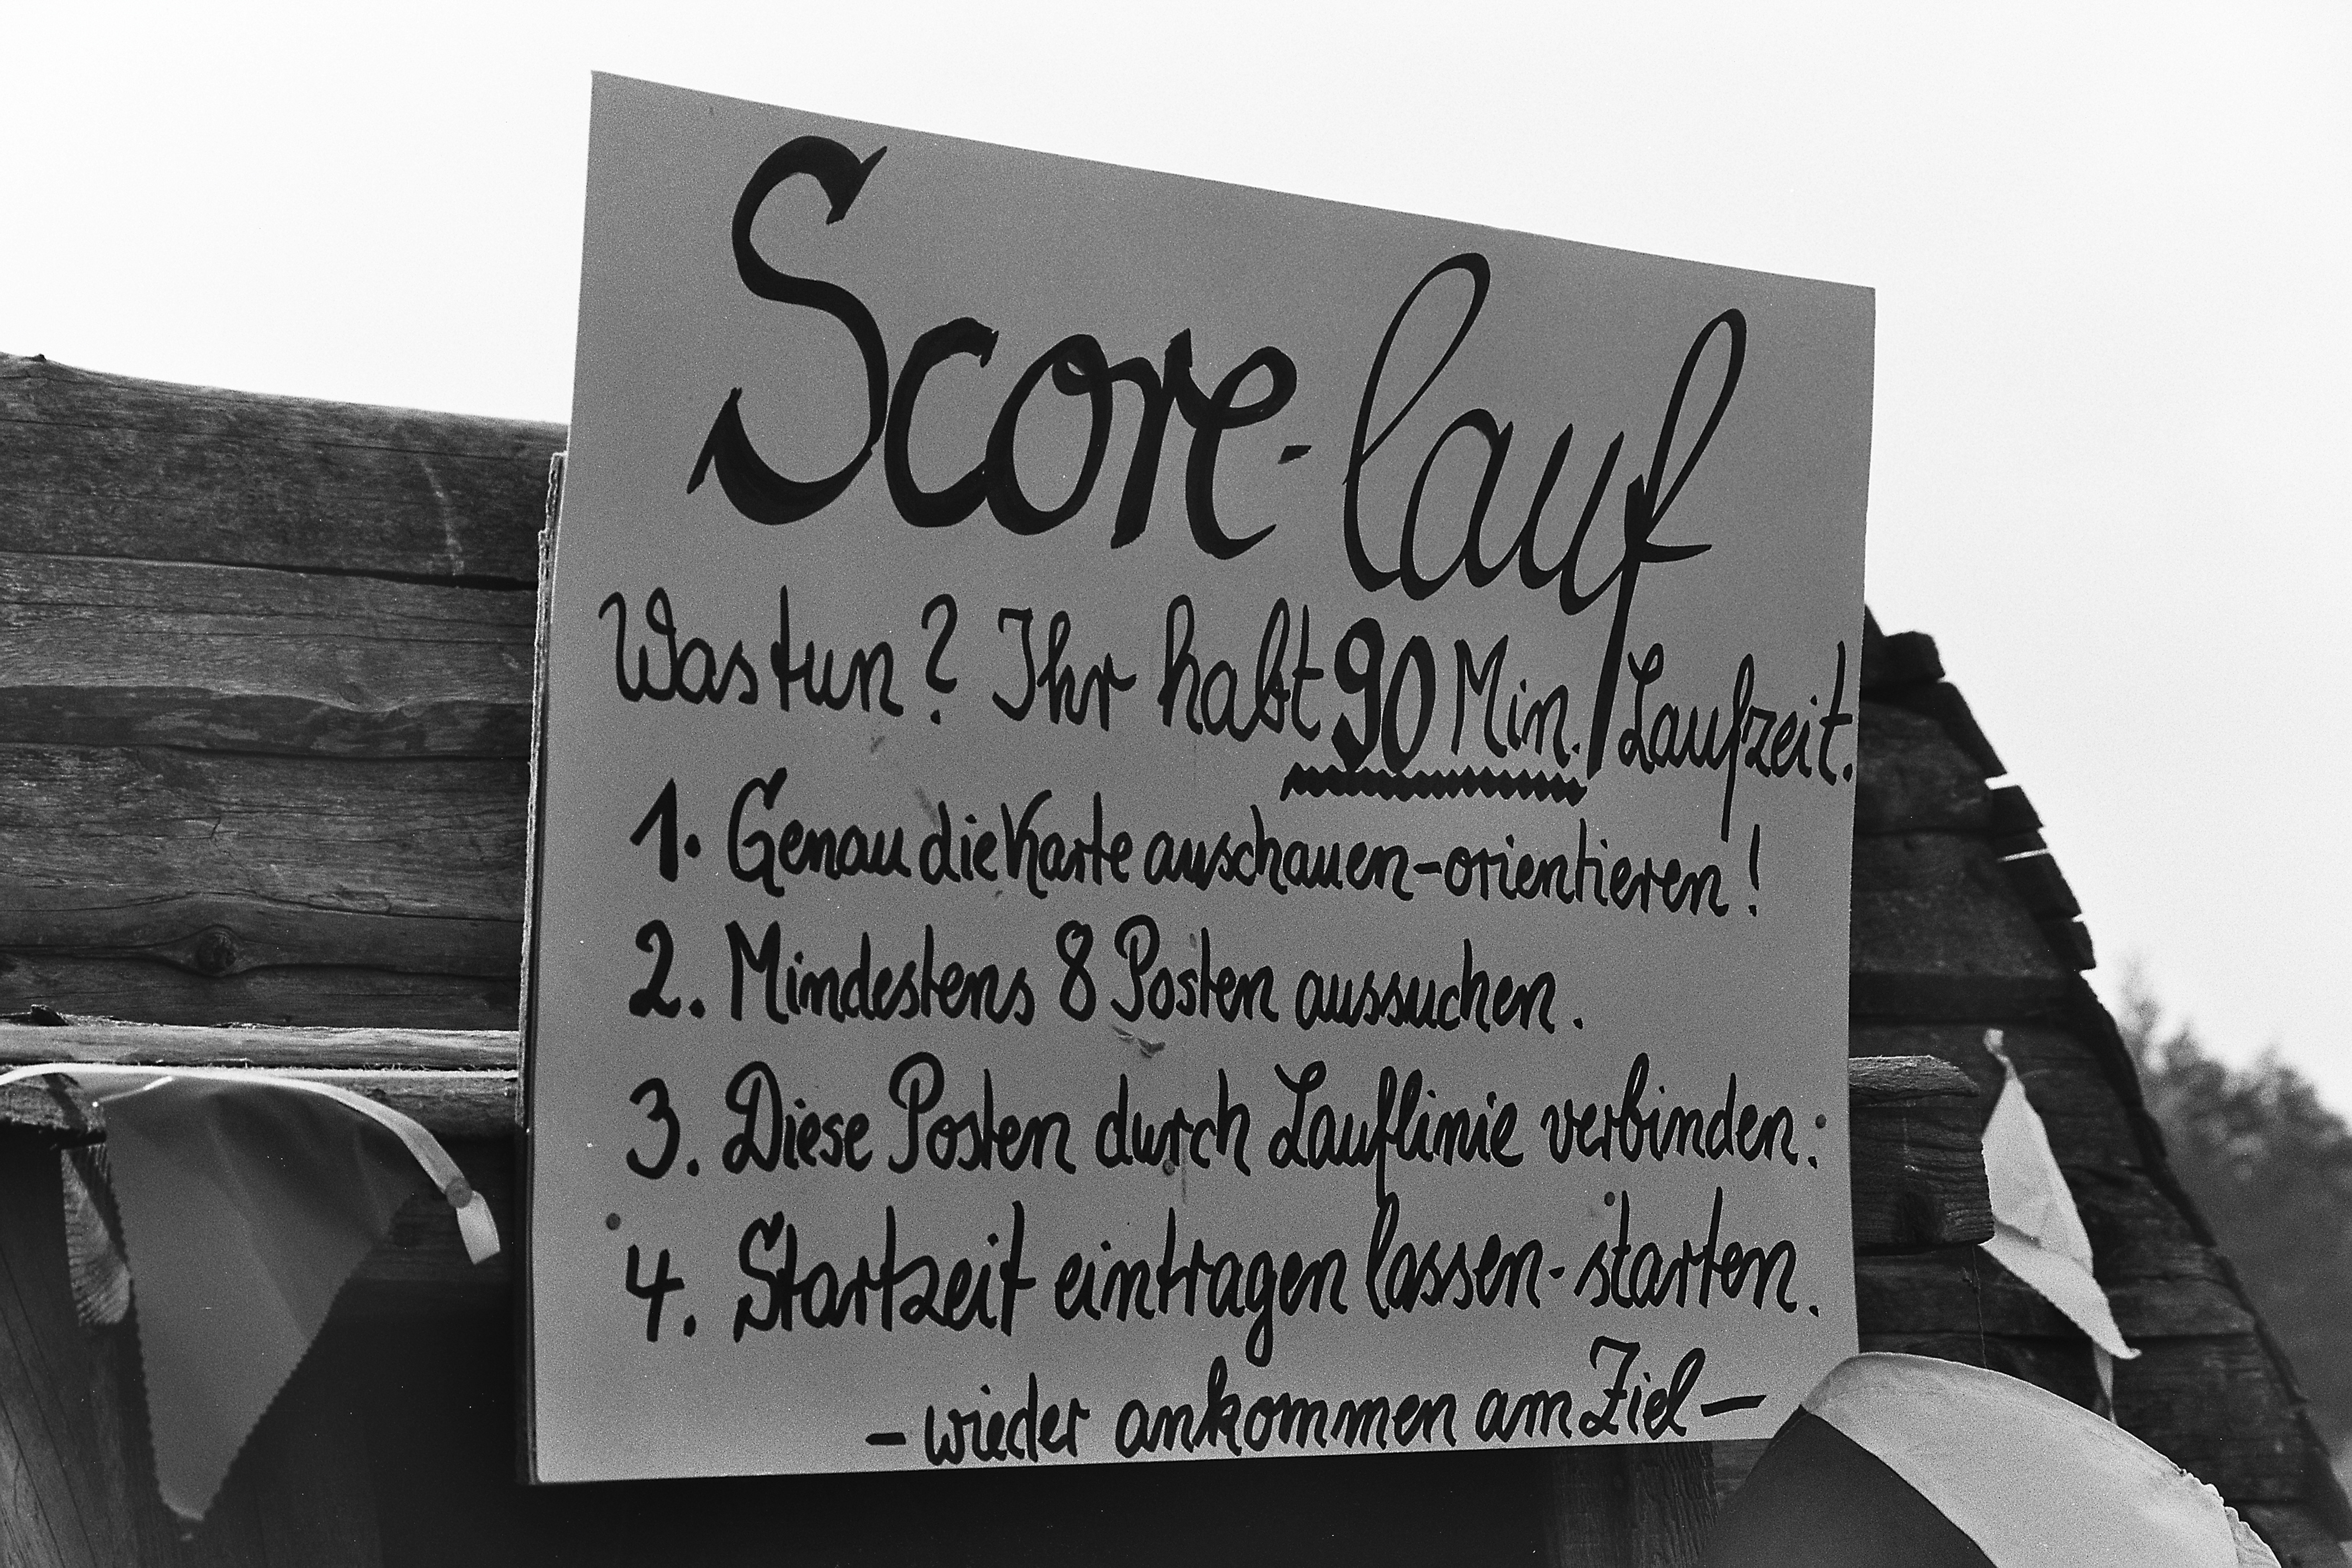 Score-lauf
Was tun? Ihr habt 90 Min. Laufzeit.
1. Genau die Karte anschauen-orientieren!
2. Mindestens 8 Posten aussuchen.
3. Diese Posten durch Lauflinie verbinden.
4. Startzeit eintragen lassen-starten.
- wieder ankommen am Ziel -